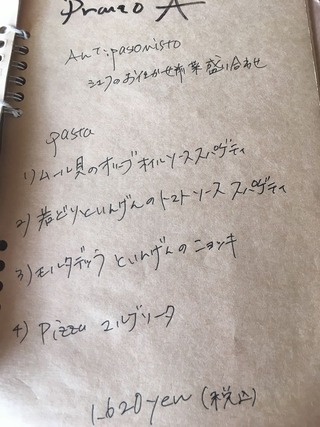 Pranzo A
Anti:pasomisto
シェフのおまかせ前菜盛い合わせ
pasta
1) ムール貝のオリーブオイルソーススパゲティ
2) 若どりといんげんのトマトソース スパゲティ
3) モルタデッラ といんげんのニョッキ
4) Pizza マルゲリータ
1,620yen (税込)